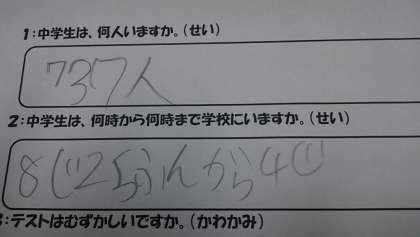 1:中学生は、何人いますか。(せい)
737人
2:中学生は、何時から何時まで学校にいますか。(せい)
8じ25ふんから4じ
3:テストはむずかしいですか。(かわかみ)